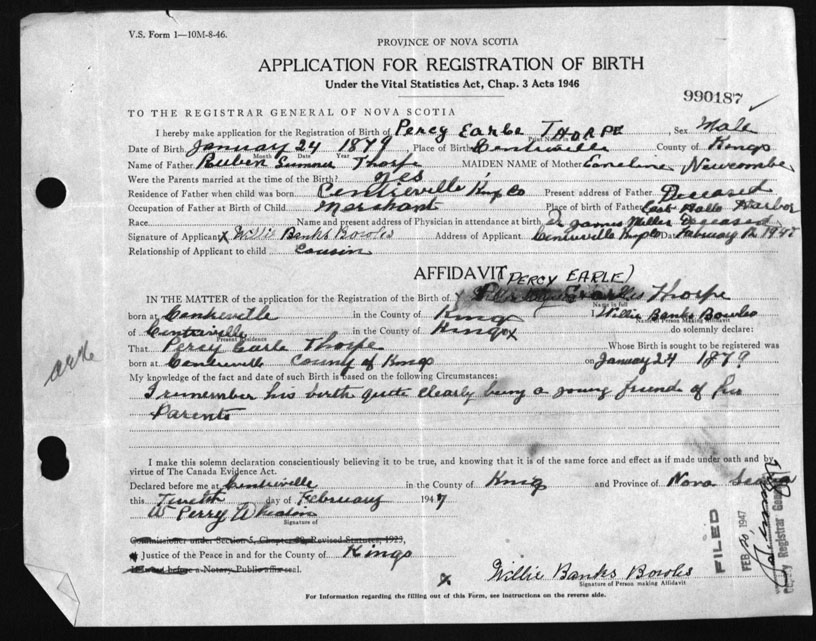 V.S. Form 1—10M-8-46.
PROVINCE OF NOVA SCOTIA
APPLICATION FOR REGISTRATION OF BIRTH
Under the Vital Statistics Act, Chap. 3 Acts 1946
990187
TO THE REGISTRAR GENERAL OF NOVA SCOTIA
I hereby make application for the Registration of Birth of Percy Earle THORPE, Sex Male
Print Name
Date of Birth January 24 1879, Place of Birth Centreville County of Kings
Month Date Year
Name of Father Reuben Sumner Thorpe MAIDEN NAME of Mother Newcombe
Were the Parents married at the time of the Birth? Yes
Residence of Father when child was born Centreville Kings Co Present address of Father Deceased
Occupation of Father at Birth of Child Merchant Place of birth of Father East Halls Harbor
Race Name and present address of Physician in attendance at birth Dr James Miller Deceased
Signature of Applicant x Willie Banks Bowles Address of Applicant Centreville Kings Co Date February 12 1947
Relationship of Applicant to child Cousin
AFFIDAVIT (PERCY EARLE)
IN THE MATTER of the application for the Registration of Birth of Thorpe
Name in full
born at Centreville in the County of Kings Willie Banks Bowles
Name of Person Making Affidavit
of Centreville in the County of Kings x do solemnly declare:
Present Residence
That Percy Earle Thorpe Whose Birth is sought to be registered was
born at Centreville County of Kings on January 24 1879
My knowledge of the fact and date of such Birth is based on the following Circumstances:
I remember his birth quite clearly being a young friend of his
Parents
I make this solemn declaration conscientiously believing it to be true, and knowing that it is of the same force and effect as if made under oath and by
virtue of The Canada Evidence Act.
Declared before me at Centreville in the County of Kings and Province of Nova Scotia
this Twelfth day of February 1947
W Perry Wheaton
Signature of
Commissioner under Section 5, Chapter Revised Statutes, 1923,
x Justice of the Peace in and for the County of Kings
a Notary Public affix seal.
x Willie Banks Bowles
Signature of Person making Affidavit
For Information regarding the filling out of this Form, see instructions on the reverse side.
FILED
FEB 20 1947
Deputy Registrar General